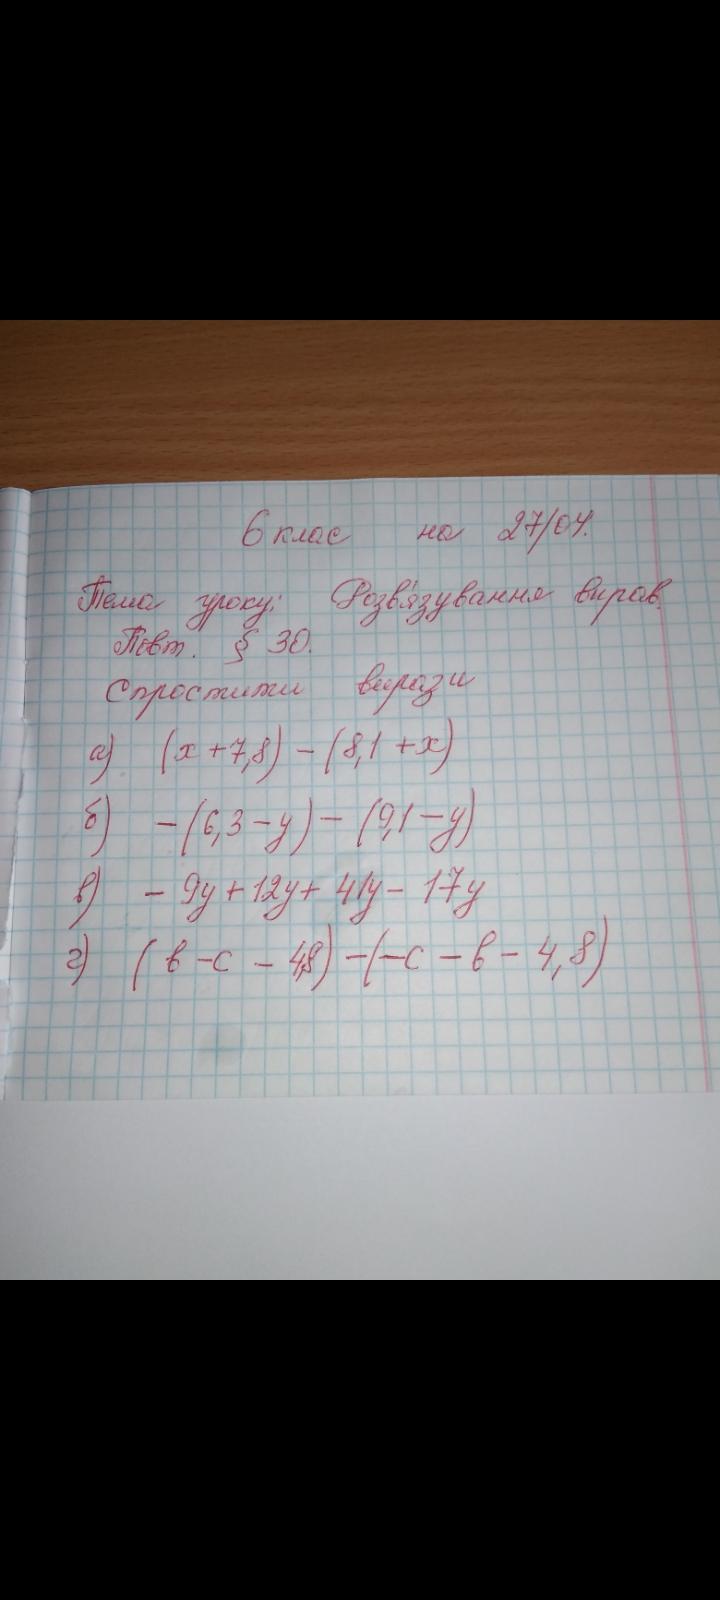 6 клас на 27/04.
Тема уроку: Розв'язування вправ.
Повт. § 30.
Спростити вирази
а) (x + 7,8) - (8,1 + x)
б) - (6,3 - y) - (9,1 - y)
в) - 9y + 12y + 41y - 17y
г) (в - с - 4,8) - (-с - в - 4,8)